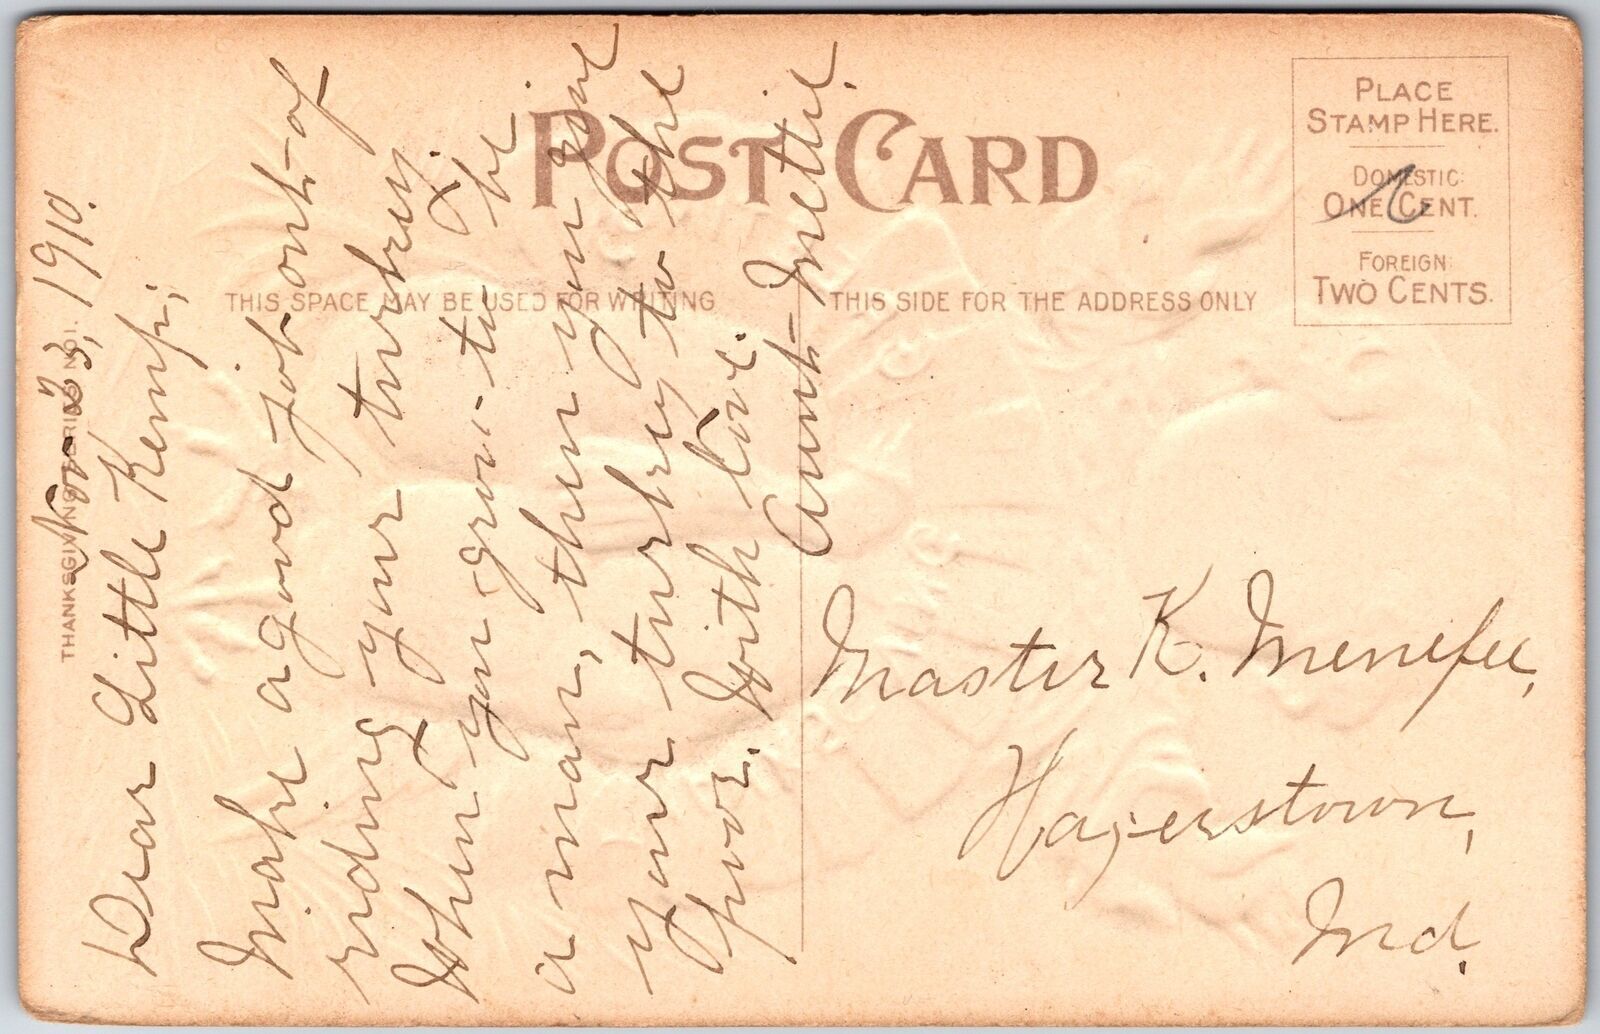 POST CARD
PLACE
STAMP HERE.
DOMESTIC:
ONE CENT.
FOREIGN:
TWO CENTS.
THIS SPACE MAY BE USED FOR WRITING
THIS SIDE FOR THE ADDRESS ONLY
THANKSGIVING SERIES NO. 1.
Nov 23, 1910.
Dear Little Kemp;
Make a good job out of
riding your turkey.
When you grow to be
a man, then you give
your turkey to the
poor. With love.
Aunt Mettie.
Master K. Menefee,
Hagerstown,
Md.